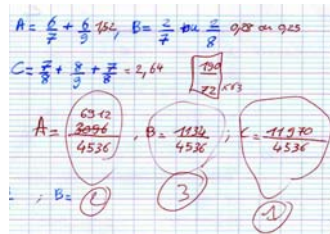 A = 6/7 + 6/9 1,52, B = 2/7 ou 2/8 0,28 ou 0,25
C = 7/8 + 8/9 + 7/8 = 2,64
190/72 x63
A = 6912 3096/4536 ; B = 1134/4536 ; C = 11970/4536
; B = 2 3 1